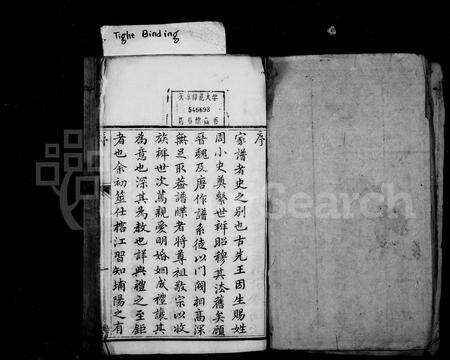 Tight Binding
序
家譜者史之別也古先王因生賜姓
周小史奠繫世辨昭穆其法舊矣顧
晉魏及唐作譜系徒以門閥相高深
無足取蓋譜牒者將尊祖敬宗以收
族辨世次萬親愛明婚姻成禮讓其
為意也深其為教也詳典禮之至鉅
者也余初筮仕檇江習知埔陽之有
序
546898
Search